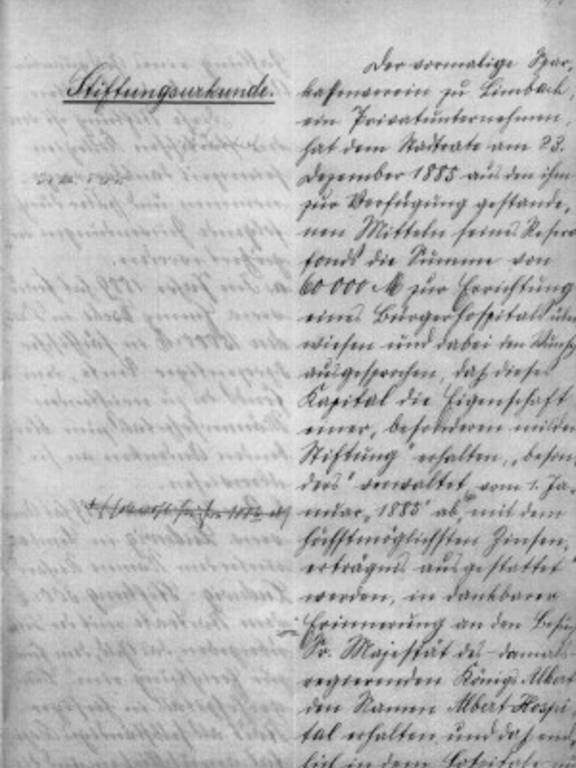 Stiftungsurkunde.
Der vormalige Spar-
kassenverein zu Limbach,
ein Privatunternehmen,
hat dem Stadtrate am 23.
Dezember 1885 aus den ihm
zur Verfügung gestande-
nen Mitteln seines Reserve
fonds die Summe von
60 000 M zur Errichtung
eines Bürgerhospitals über
wiesen und dabei den Wunsch
ausgesprochen, daß dieses
Kapital die Eigenschaft
einer, besonderen milden
Stiftung" erhalten, beson-
ders verwaltet, vom 1. Ja-
nuar 1885 ab mit dem
höchstmöglichsten Zinsen-
erträgnis ausgestattet
werden, in dankbarer
Erinnerung an den Besuch
Sr. Majestät des damals
regierenden Königs Albert
den Namen Albert Hospi-
tal erhalten und daß end-
lich in dem Hospitale